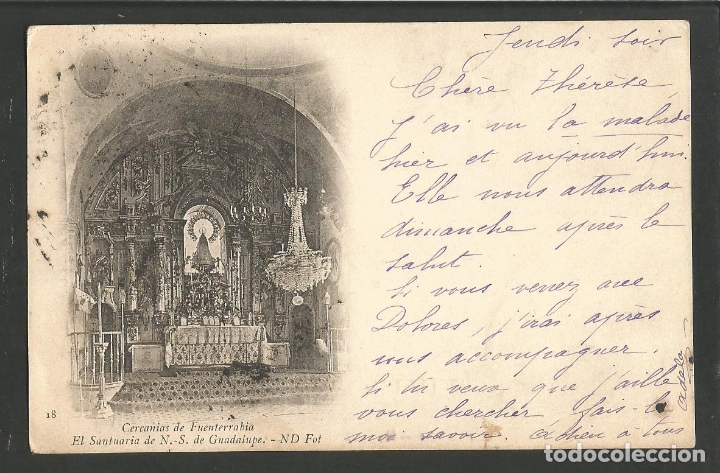 Jeudi soir
Chère Thérèse,
J'ai vu la malade
hier et aujourd'hui.
Elle nous attendra
dimanche après le
salut.
Si vous venez avec
Dolores, j'irai après
vous accompagner.
Si tu veux que j'aille
vous chercher fais-le
moi savoir. adieu à tous
adela
18
Cercanias de Fuenterrabia
El Santuaria de N.-S. de Guadalupe. - ND Fot
todocoleccion.net